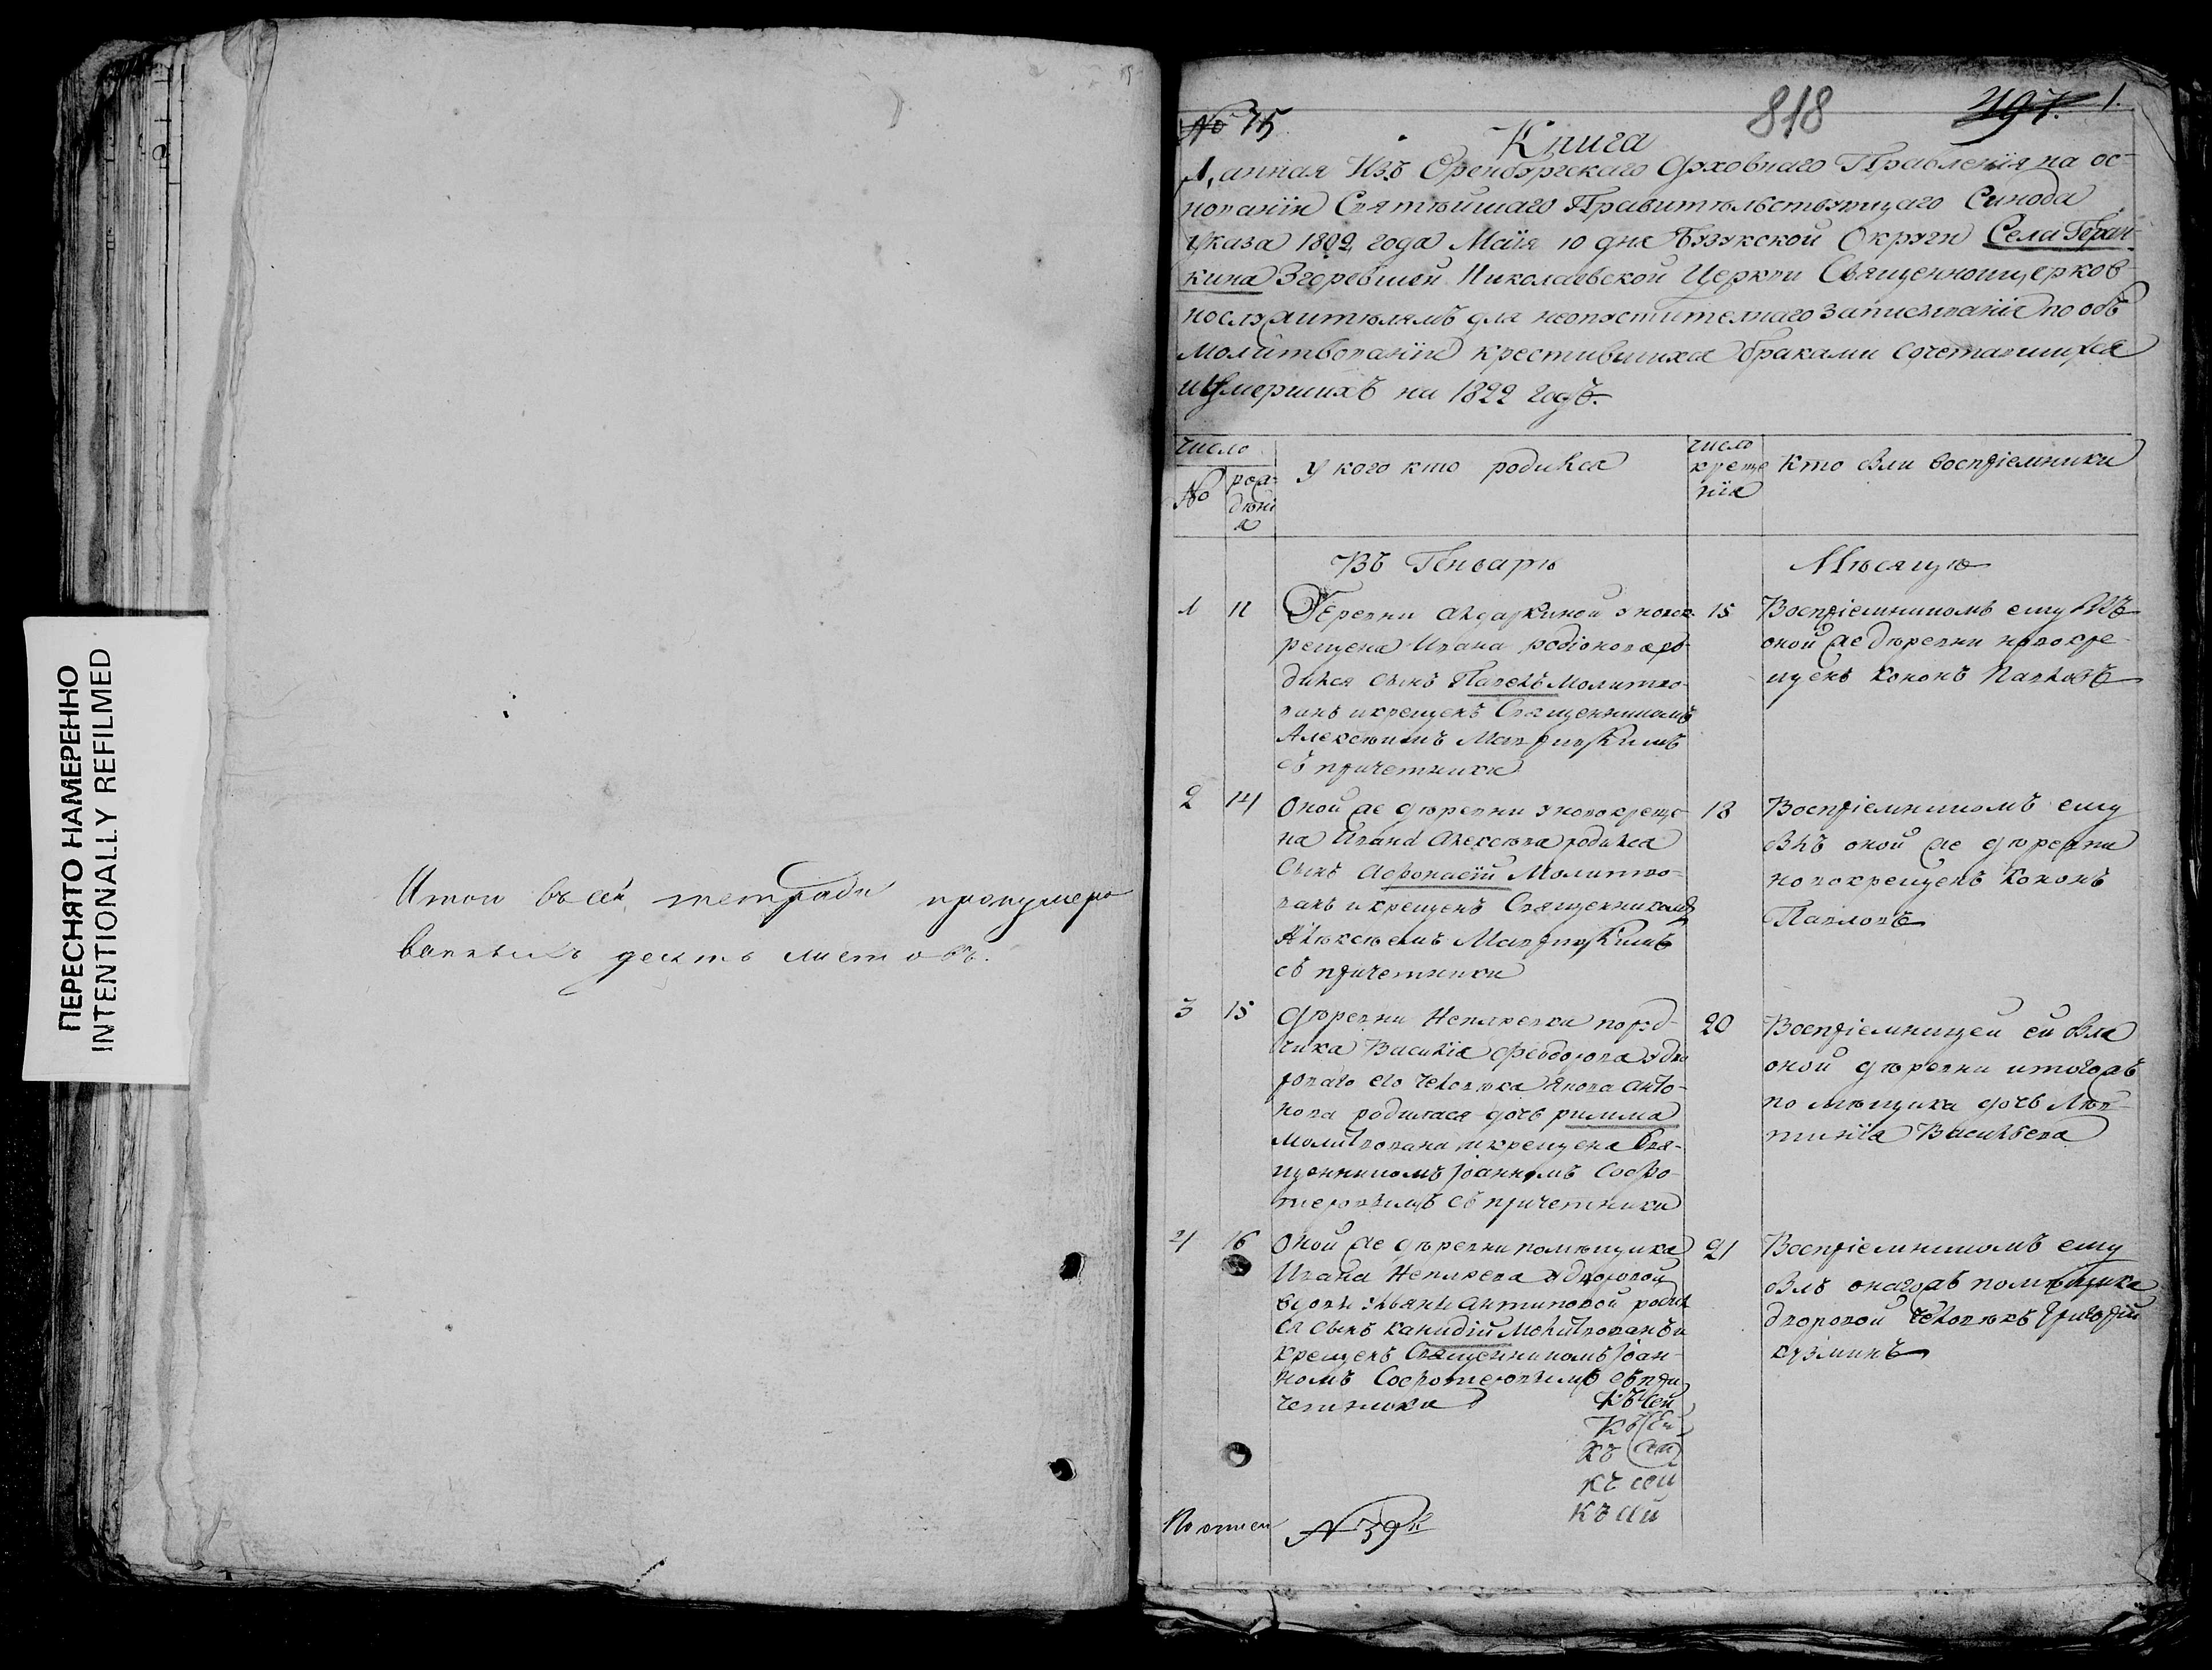 ПЕРЕСНЯТО НАМЕРЕННО
INTENTIONALLY REFILMED
Итои въ сей тетради пронумеро
ванныхъ десять листовъ.
№ 75
818
497. 1.
Книга
Данная Изъ Оренбургскаго Духовнаго Правленїя на ос-
нованїи Святѣйшаго Правительствующаго Синода
Указа 1802 года Маїя 10 дня Бузукской Округи Села Геран-
кина Згоревшей Николаевской Церкви Священноцерков-
нослужителямъ для неопустителнаго записыванїя по объ
молитвованїи крестившихся браками сочетавшихся
и Умершихъ на 1822 годъ.
число
№
рож-
дѣнї
я
у кого кто родился
число
креще
нїя
Кто были воспрїемники
Въ Генварѣ
Мѣсяцѣ
1 11
Деревни у новок-
рещена Ивана Родїонова ро-
дился сынъ Павелъ молитво-
ванъ и крещенъ Священникомъ
Алексѣимъ
съ причетники
15
Воспрїемникомъ ему былъ
оной же дѣревни новокре-
щенъ Кононъ Павловъ
2 14
Оной же дѣревни у новокреще-
на Ивана Алексѣева родился
сынъ Афонасїй Молитво-
ванъ и крещенъ Священникомъ
Алѣксѣемъ
съ причетники
18
Воспрїемникомъ ему
былъ оной же дѣревни
новокрещенъ Кононъ
Павловъ
3 15
Дѣревни Неплюевки поруд-
чика Василїя Феодорова у дво
роваго его человѣка Анто-
нова родилася дочь римма
молитвована и крещена Свя-
щенникомъ Iоанномъ Софро-
съ причетники
20
Воспрїемницей ей была
оной дѣревни и тогожъ
помѣщика дочь
Васильева
4 16
Оной же дѣревни помѣщика
Ивана Неплюева у дворовой
вдовы Ульяны Антиповой родил
ся сынъ канидїй Молитвованъ и
крещенъ Священникомъ Iоан-
номъ съ при
четники
21
Воспрїемникомъ ему
былъ онагожъ помѣщика
дворовой человѣкъ Григорїй
кузминъ
Къ сей
Къ сей
Къ сей
къ сей
къ сей
По описи № 39й